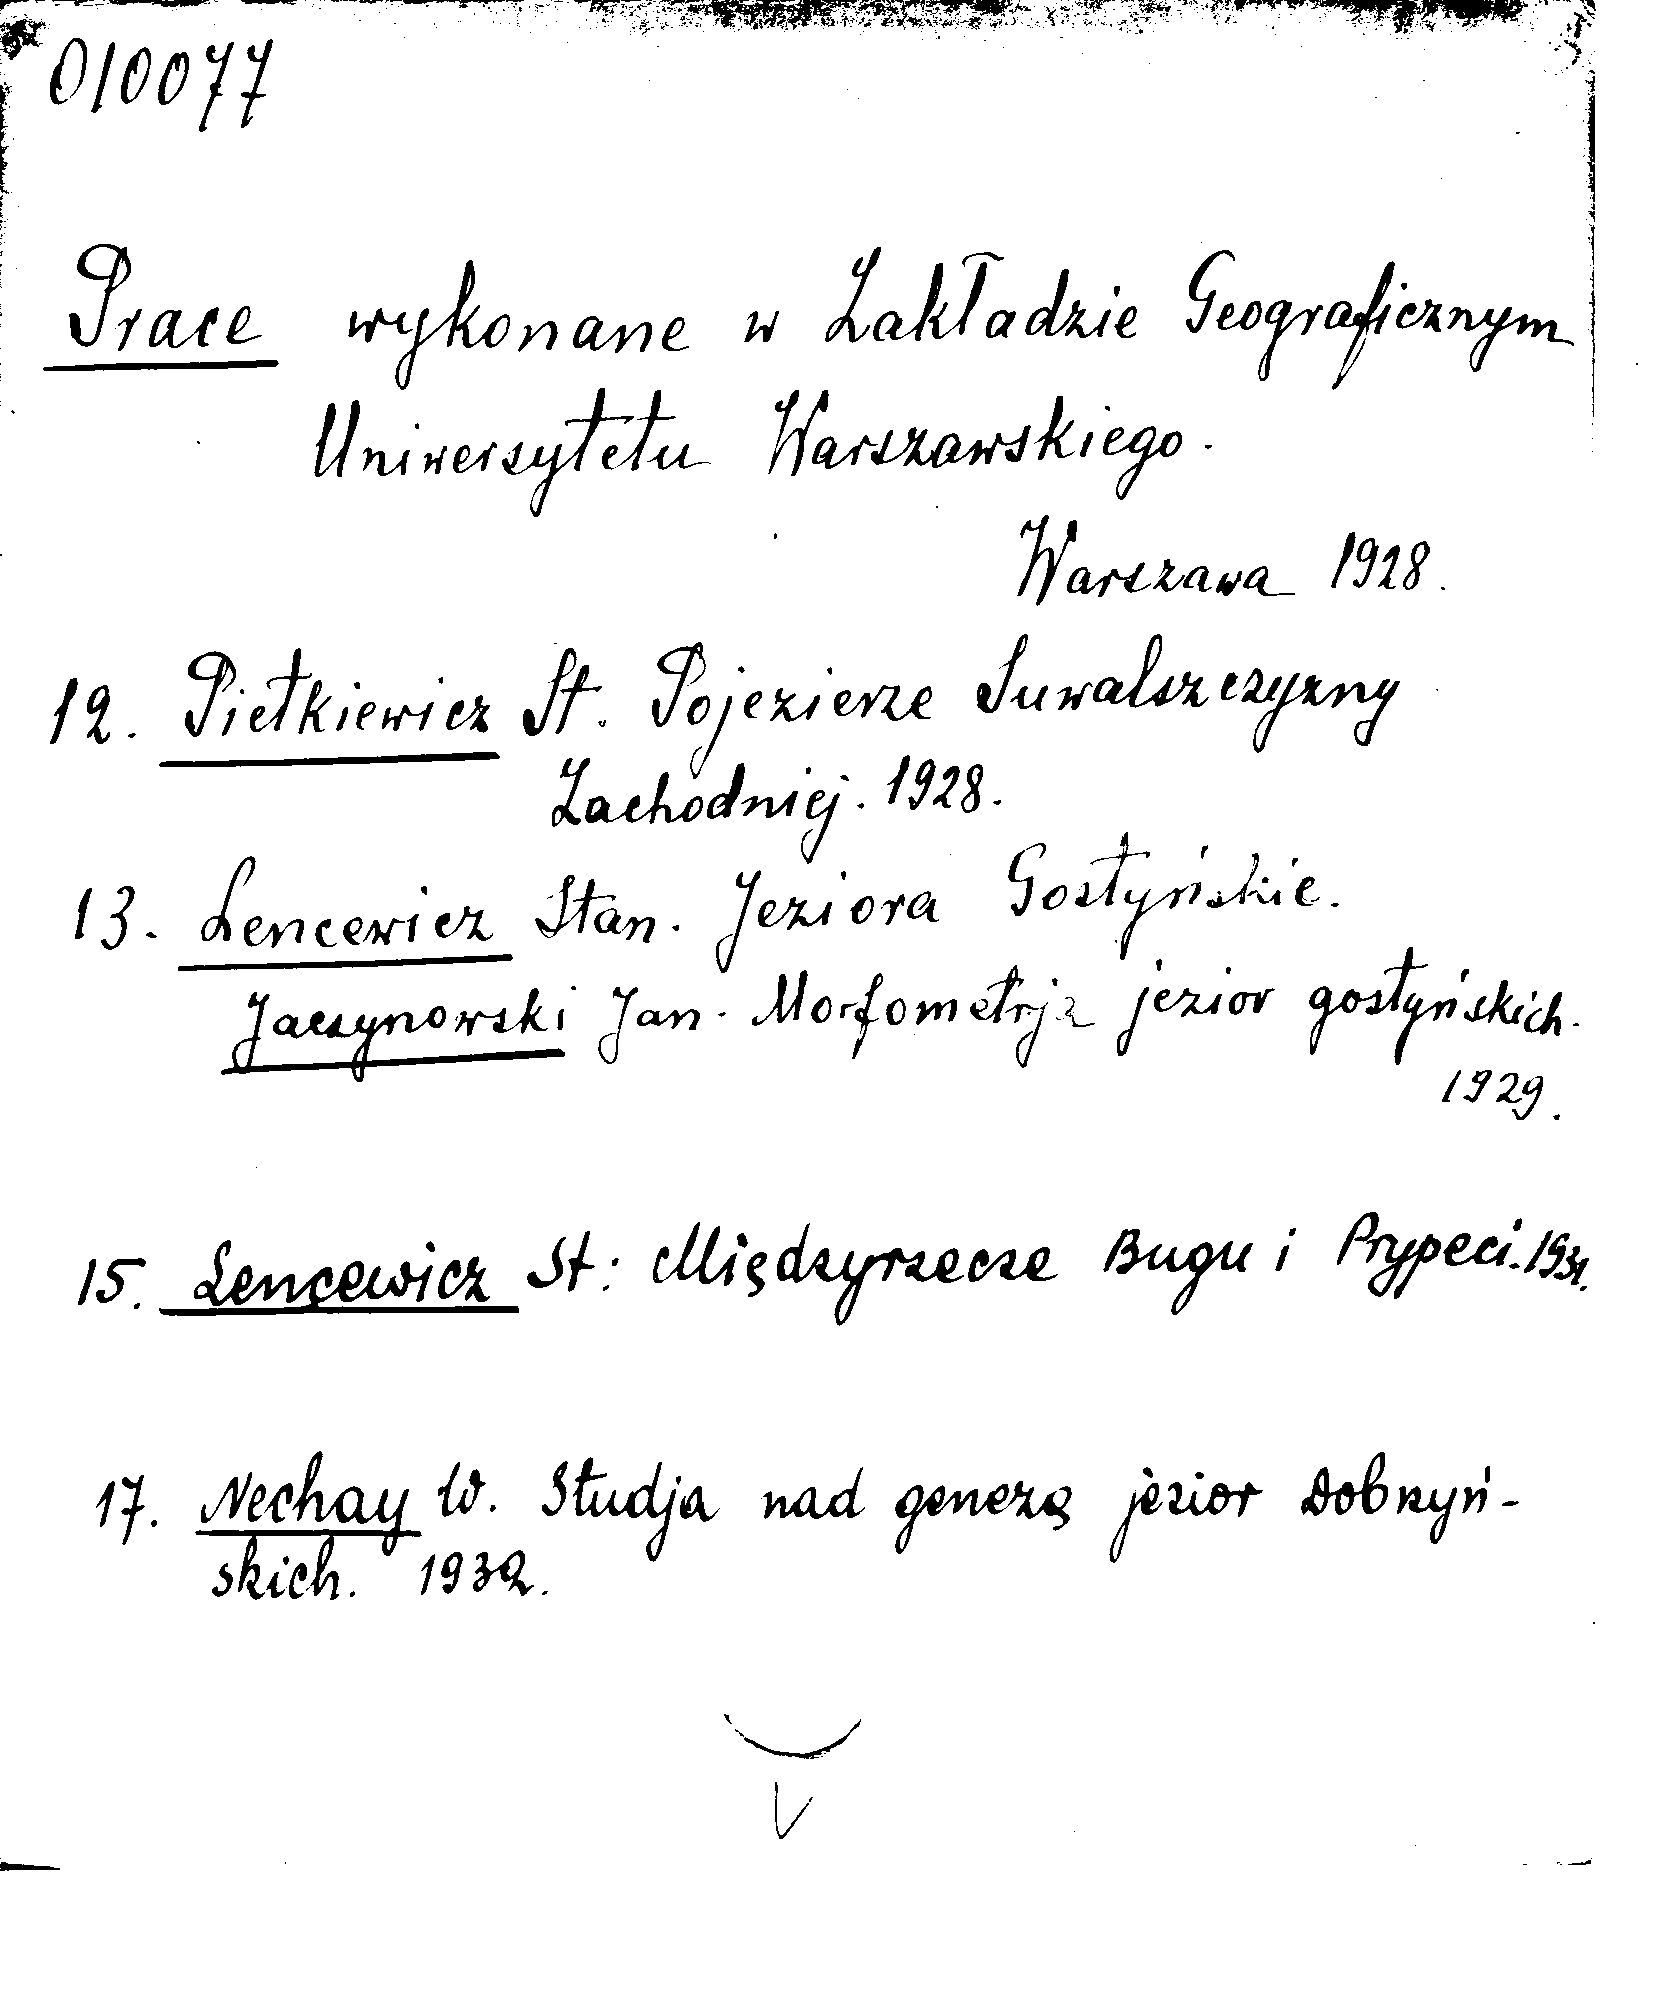 010077
Prace wykonane w Zakładzie Geograficznym
Uniwersytetu Warszawskiego.
Warszawa 1928.
12. Pietkiewicz St. Pojezierze Suwalszczyzny
Zachodniej. 1928.
13. Lencewicz Stan. Jeziora Gostyńskie.
Jaczynowski Jan. Morfometrja jezior gostyńskich.
1929.
15. Lencewicz St: Międzyrzecze Bugu i Prypeci. 1931.
17. Nechay W. Studja nad genezą jezior Dobrzyń-
skich. 1932.